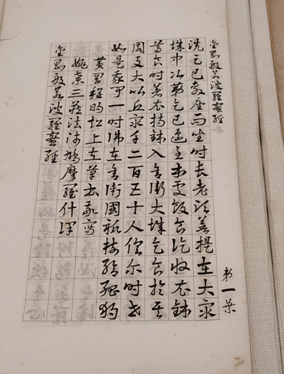 金剛般若波羅蜜經
姚秦三藏法師鳩摩羅什譯
草書敬寫
如是我聞一时佛在舍衛國祇樹給孤獨
園與大比丘眾千二百五十人俱爾时世
尊食时著衣持缽入舍衛大城乞食於其
城中次第乞已還至本處飯食訖收衣缽
洗足已敷座而坐时長老須菩提在大眾
金剛般若波羅蜜經
第一葉